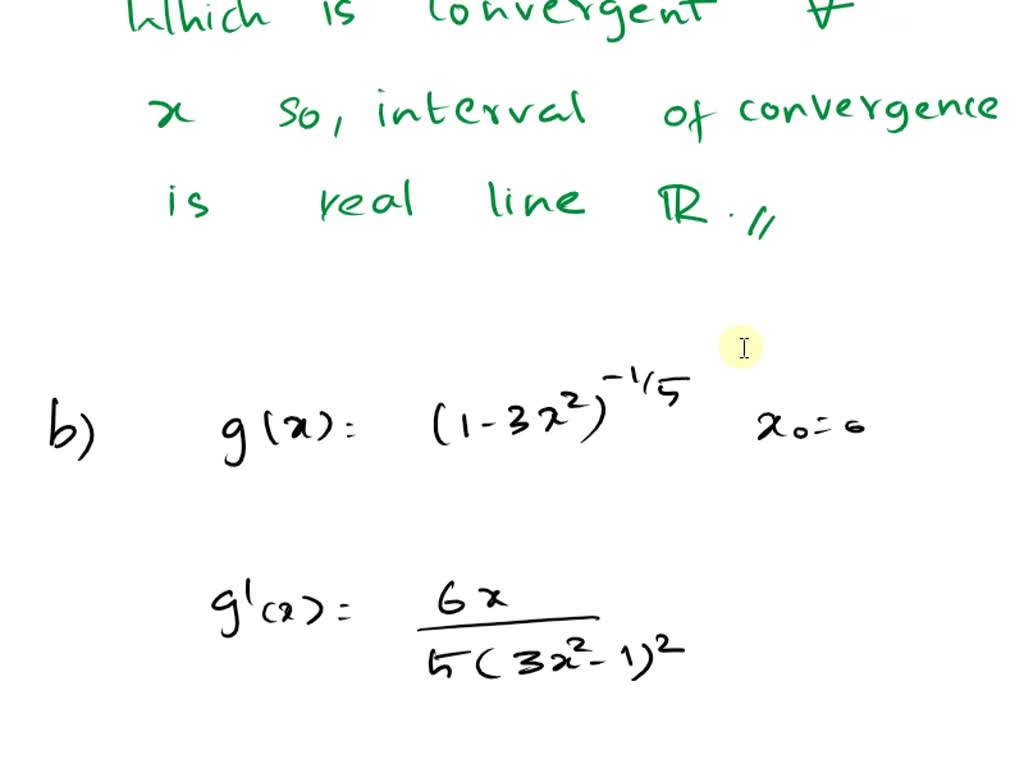 Which is convergent ∀
x so, interval of convergence
is real line ℝ. //
b) g(x) = (1-3x²)^-1/5 x₀=0
g'(x) = 6x / 5(3x²-1)²